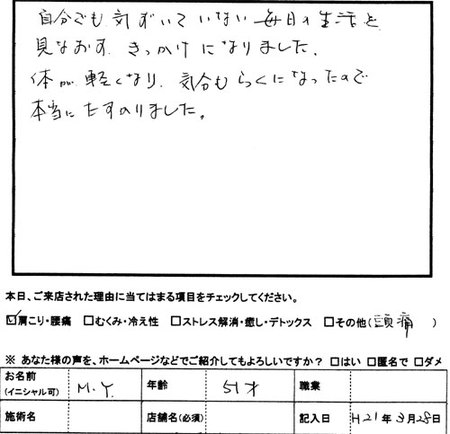 自分でも気ずいていない毎日の生活を
見なおす きっかけになりました、
体が軽くなり、気分もらくになったので
本当にたすかりました。
本日、ご来店された理由に当てはまる項目をチェックしてください。
☑肩こり・腰痛 □むくみ・冷え性 □ストレス解消・癒し・デトックス □その他(頭痛 )
※ あなた様の声を、ホームページなどでご紹介してもよろしいですか？ □はい □匿名で □ダメ
お名前 (イニシャル可) M.Y. 年齢 51才 職業
施術名 店舗名(必須) 記入日 H21年3月28日